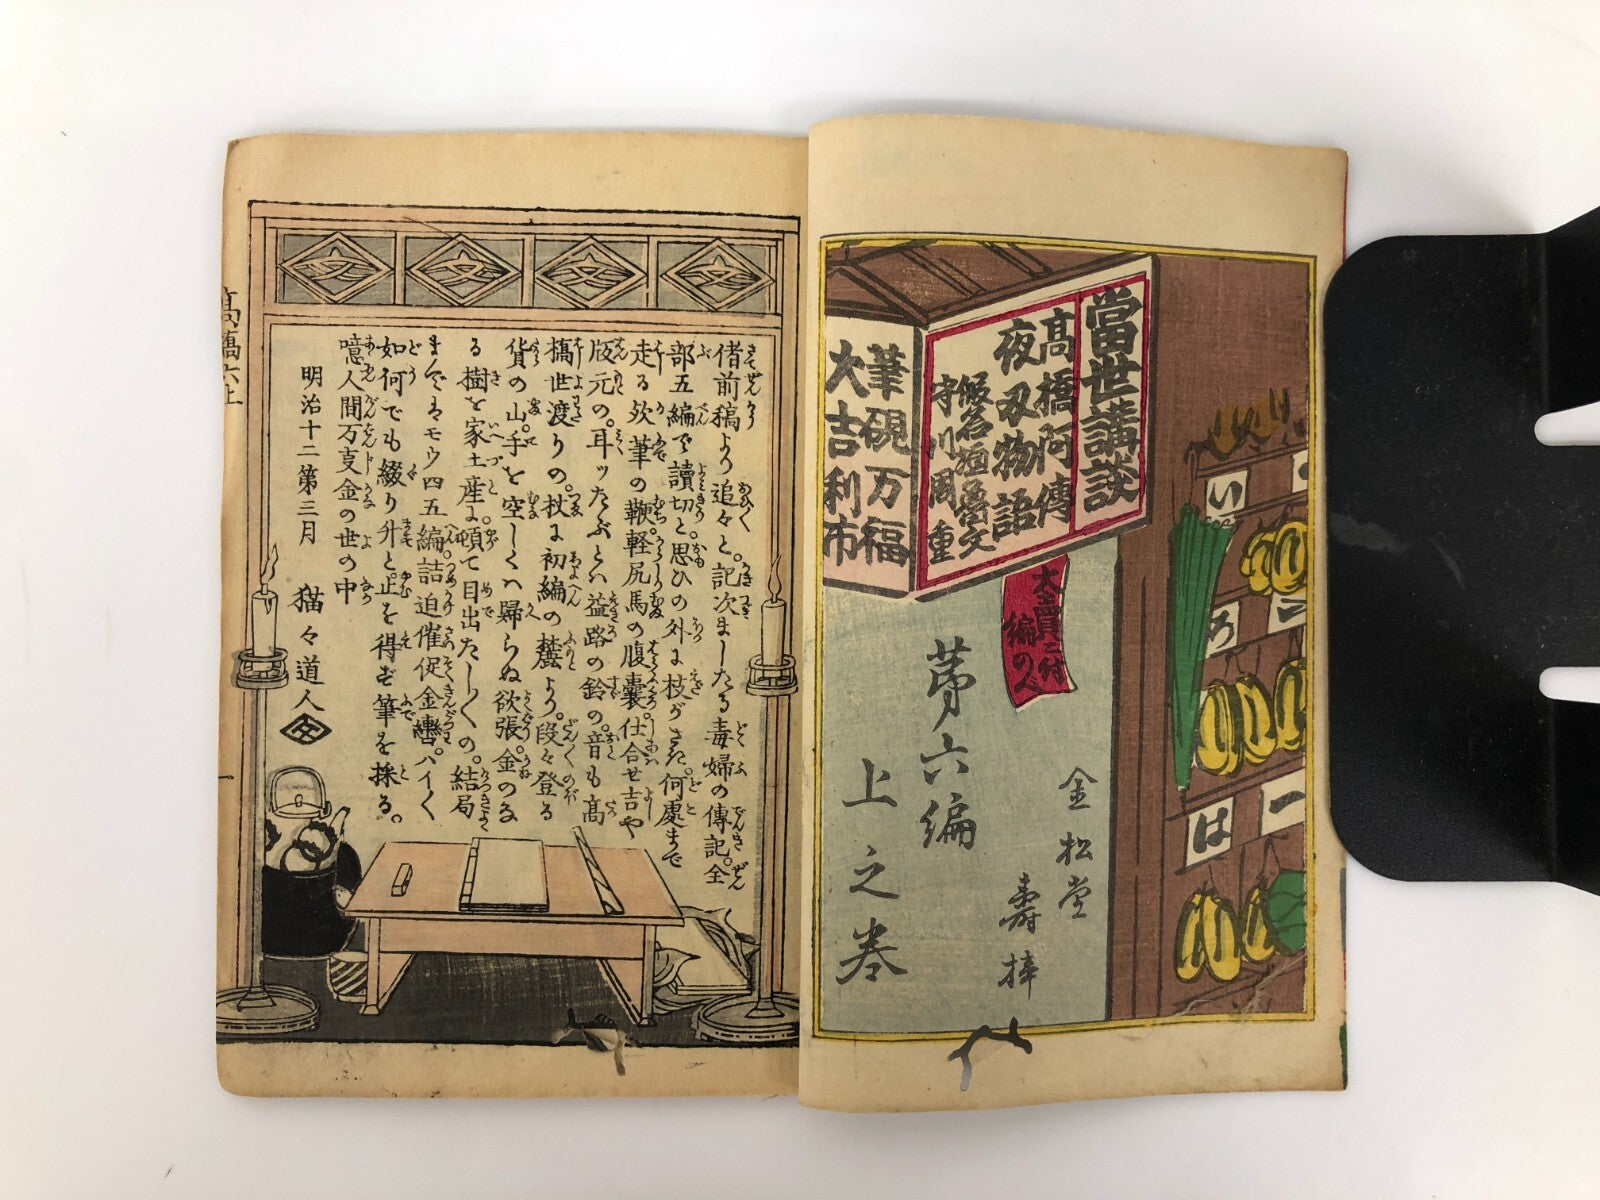 當世講談
高橋阿傳
夜刃物語
假名垣魯文
守川周重
筆硯万福
大吉利市
大吉
編の入
第六編
上之巻
金松堂
壽梓
い
ろ
は
一
二
偖前稿より追々と。記次ましたる毒婦の傳記。全
部五編で讀切と。思ひの外に枝がさき。何處まで
走る欤筆の鞭。軽尻馬の腹嚢。仕合せ吉や
版元の。耳ッたぶとい益路の鈴の。音も高
橋世渡りの。杖は初編の麓より。段々登る
貨の山。手を空しくハ歸らぬ欲張。金のな
る樹を家土産に。頓て目出たしくの。結局
まんでハモウ四五編。詰迫催促金轡。ハイく
如何でも綴り升と。止を得ず筆を採る。
噫人間万支金の世の中
明治十二第三月
猫々道人
高橋六上
一